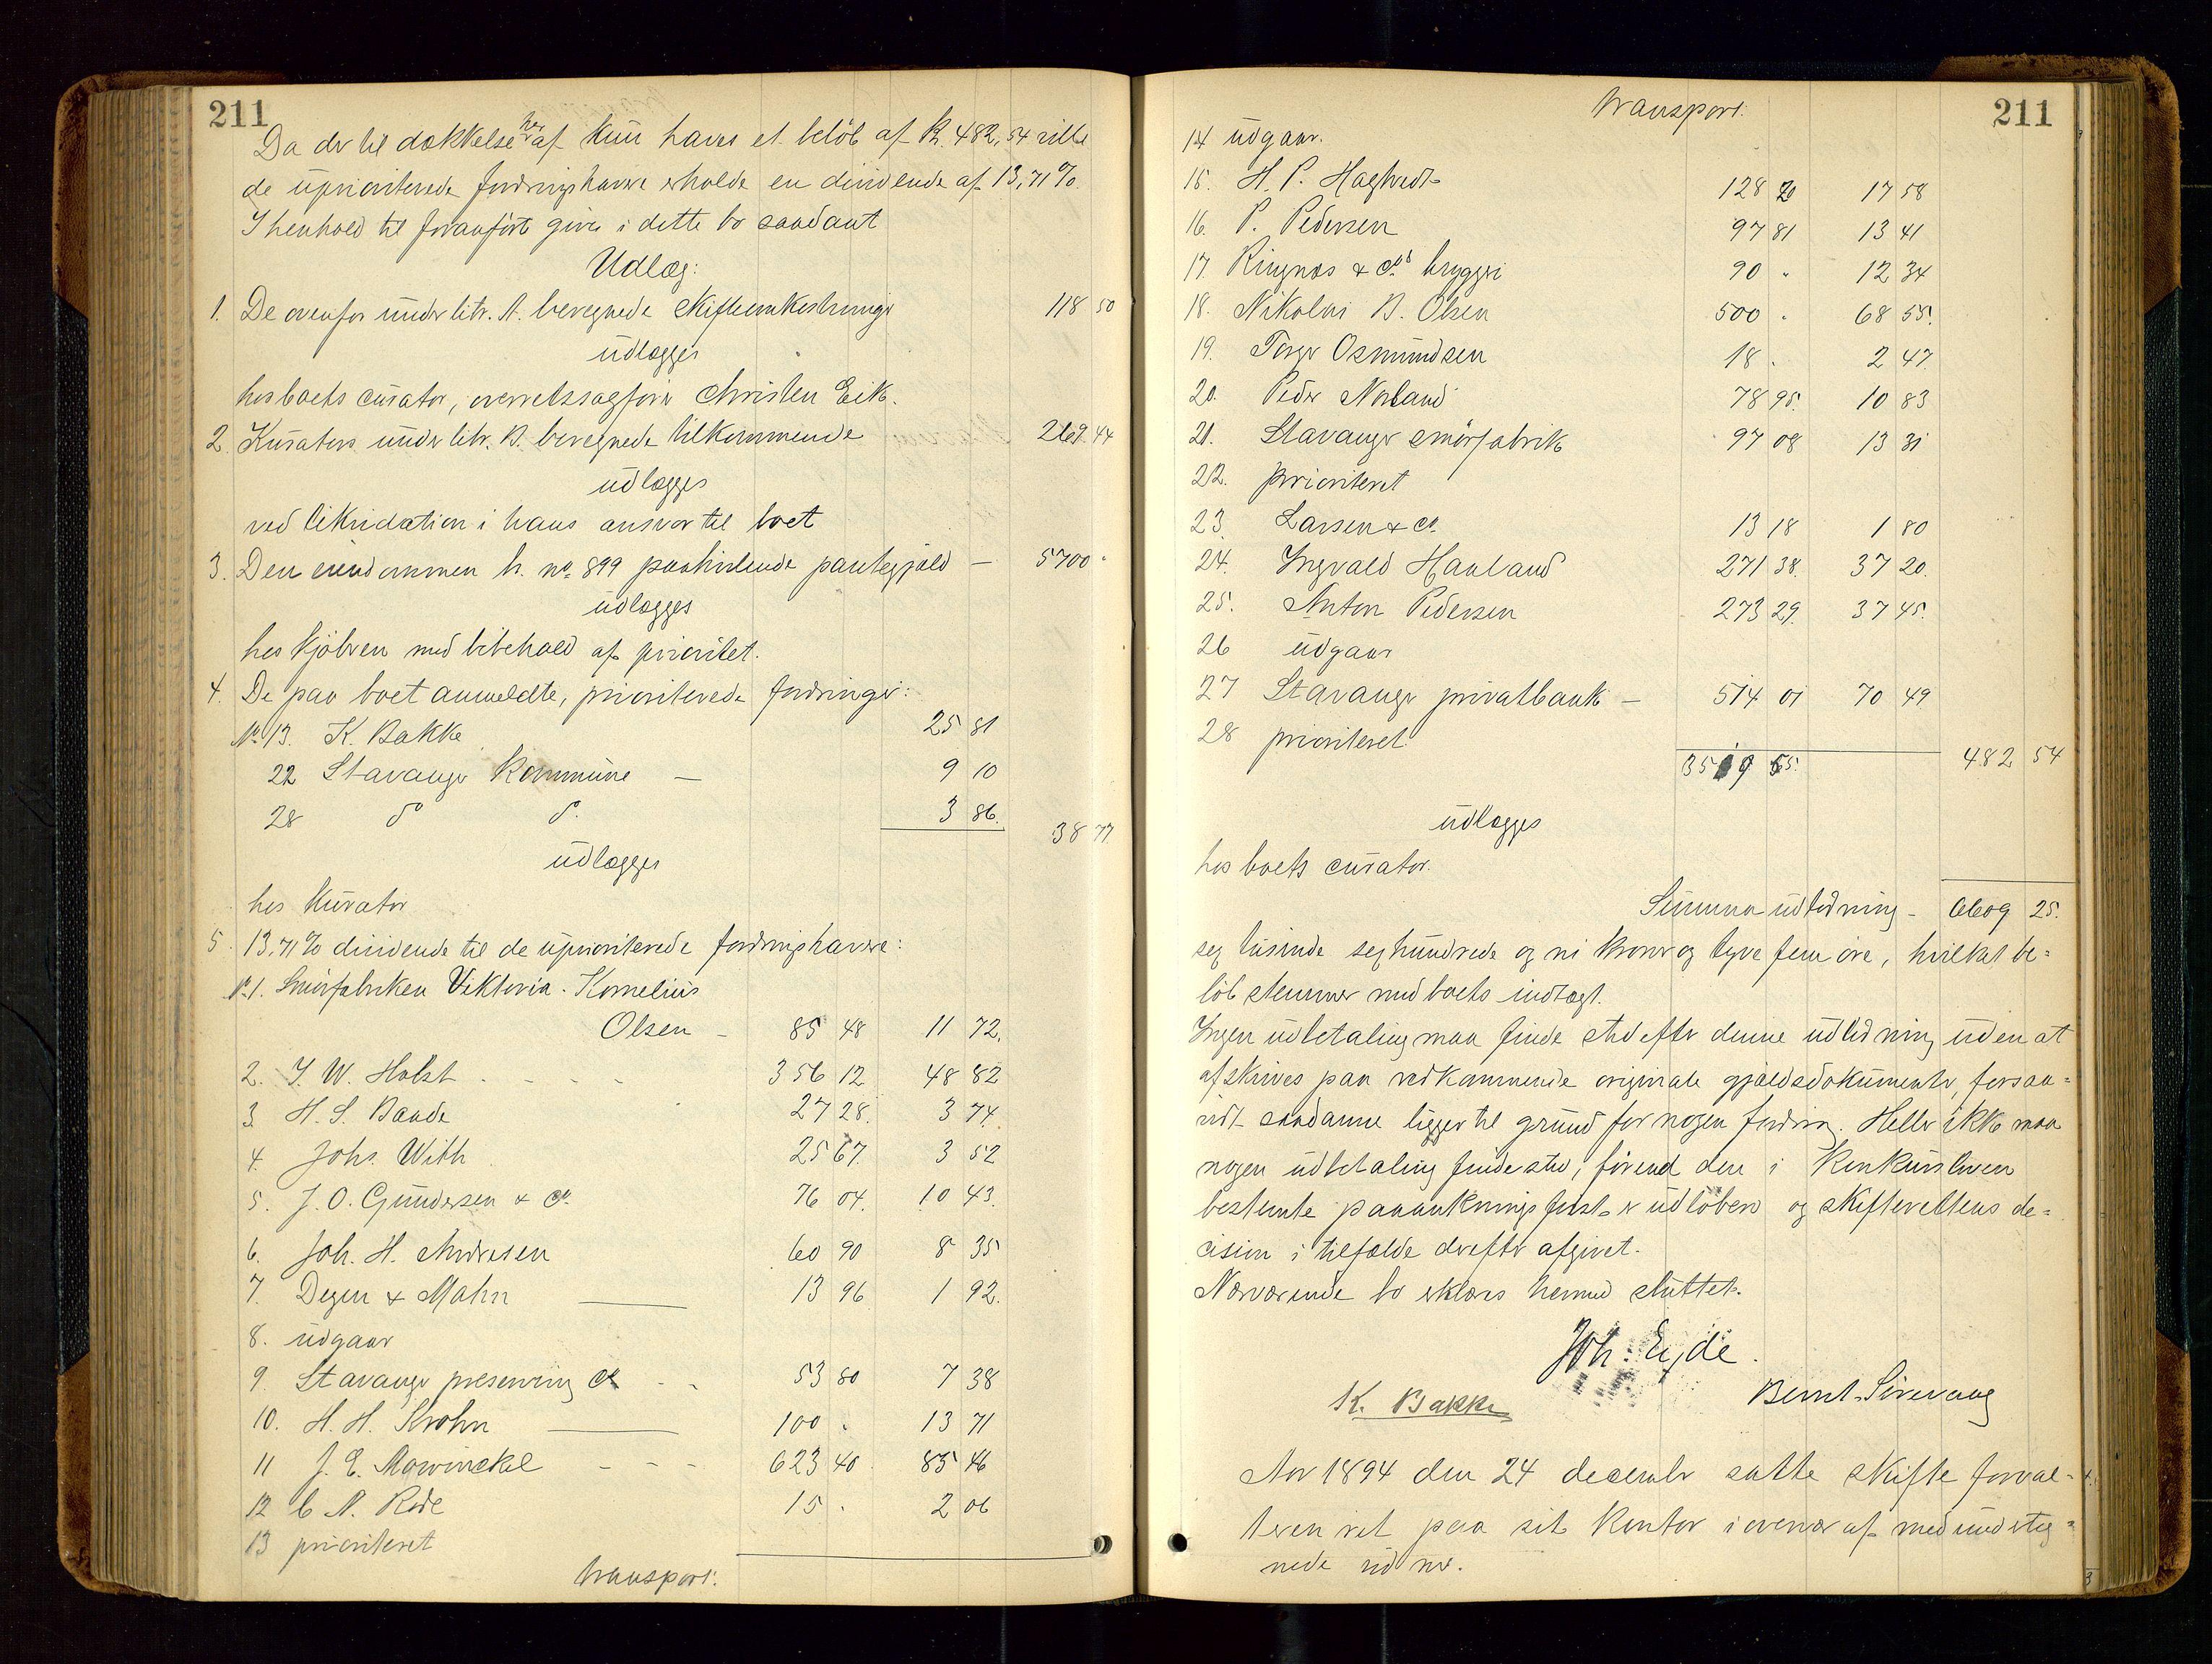 211
Da der til dækkelse heraf kun haves et beløb af Kr. 482,54 ville
de uprioriterede fordringshavere erholde en dividende af 13,71%.
I henhold til foranførte gives i dette bo saadant
Udlæg:
1. De ovenfor under litr. A. beregnede skifteomkostninger 118 50
udlægges
hos boets curator, overretssagfører Christen Eik.
2. Kurators under litr. B. beregnede tilkommende 269 44
udlægges
ved likvidation i hans ansvar til boet
3. Den eiendommen br. no. 899 paahvilende pantegjæld — 5700 "
udlægges
hos kjøberen med bibehold af prioritet.
4. De paa boet anmeldte, prioriterede fordringer:
No. 13. K. Bakke 25 81
22 Stavanger Kommune — 9 10
28 do do. 3 86.
38 77
udlægges
hos kurator
5. 13,71% dividende til de uprioriterede fordringshavere:
No. 1. Smørfabriken Viktoria - Kornelius
Olsen — 85 48 11 72.
2. J. W. Holst - - - - 356 12 48 82
3. H. S. Baade 27 28. 3 74.
4. Johs. With 25 67. 3 52
5. J. O. Gundersen & Co. 76 04. 10 43.
6. Joh. H. Andresen 60 90 8 35
7. Degen & Mahn — 13 96 1 92.
8. udgaar
9. Stavanger preserving Co - - 53 80 7 38
10. H. H. Krohn — 100 " 13 71
11 J. E. Mowinckel - - - 623 40 85 46
12 C. A. Rode 15 " 2 06
13 prioriteret
Transport.
211
Transport.
14 udgaar.
15. H. P. Hagtvedt 128 20 17 58
16. P. Pedersen 97 81 13 41
17. Ringnæs & Co.s bryggeri 90 " 12 34
18. Nikolai B. Olsen 500 " 68 55.
19. Torger Osmundsen 18 " 2 47.
20. Peder Norland 78 95. 10 83
21. Stavanger smørfabrik 97 08 13 31
22. prioriteret
23. Larsen & Co. 13 18 1 80
24. Ingvald Haaland 271 38. 37 20.
25. Anton Pedersen 273 29. 37 45.
26 udgaar
27 Stavanger privatbank — 514 01 70 49
28 prioriteret
3519 55. 482 54
udlægges
hos boets curator.
Summa udlodning — 6609 25.
seg tusinde seghundrede og ni kroner og tyve fem øre, hvilket be=
løb stemmer med boets indtægt.
Ingen udbetaling maa finde sted efter denne udlodning uden at
afskrives paa vedkommende originale gjældsdokumenter, forsaa=
vidt saadanne ligger til grund for nogen fordring. Heller ikke maa
nogen udbetaling finde sted, førend den i Konkursloven
bestemte paaankningsfrist er udløben og skifterettens de=
cision i tilfælde derefter afgivet.
Nærværende bo erklæres hermed sluttet.
Joh. Eyde.
K. Bakke Bernt Sirevaag
Aar 1894 den 24 december satte skifteforval=
teren ret paa sit kontor i overvær af medunderteg=
nede vidner.